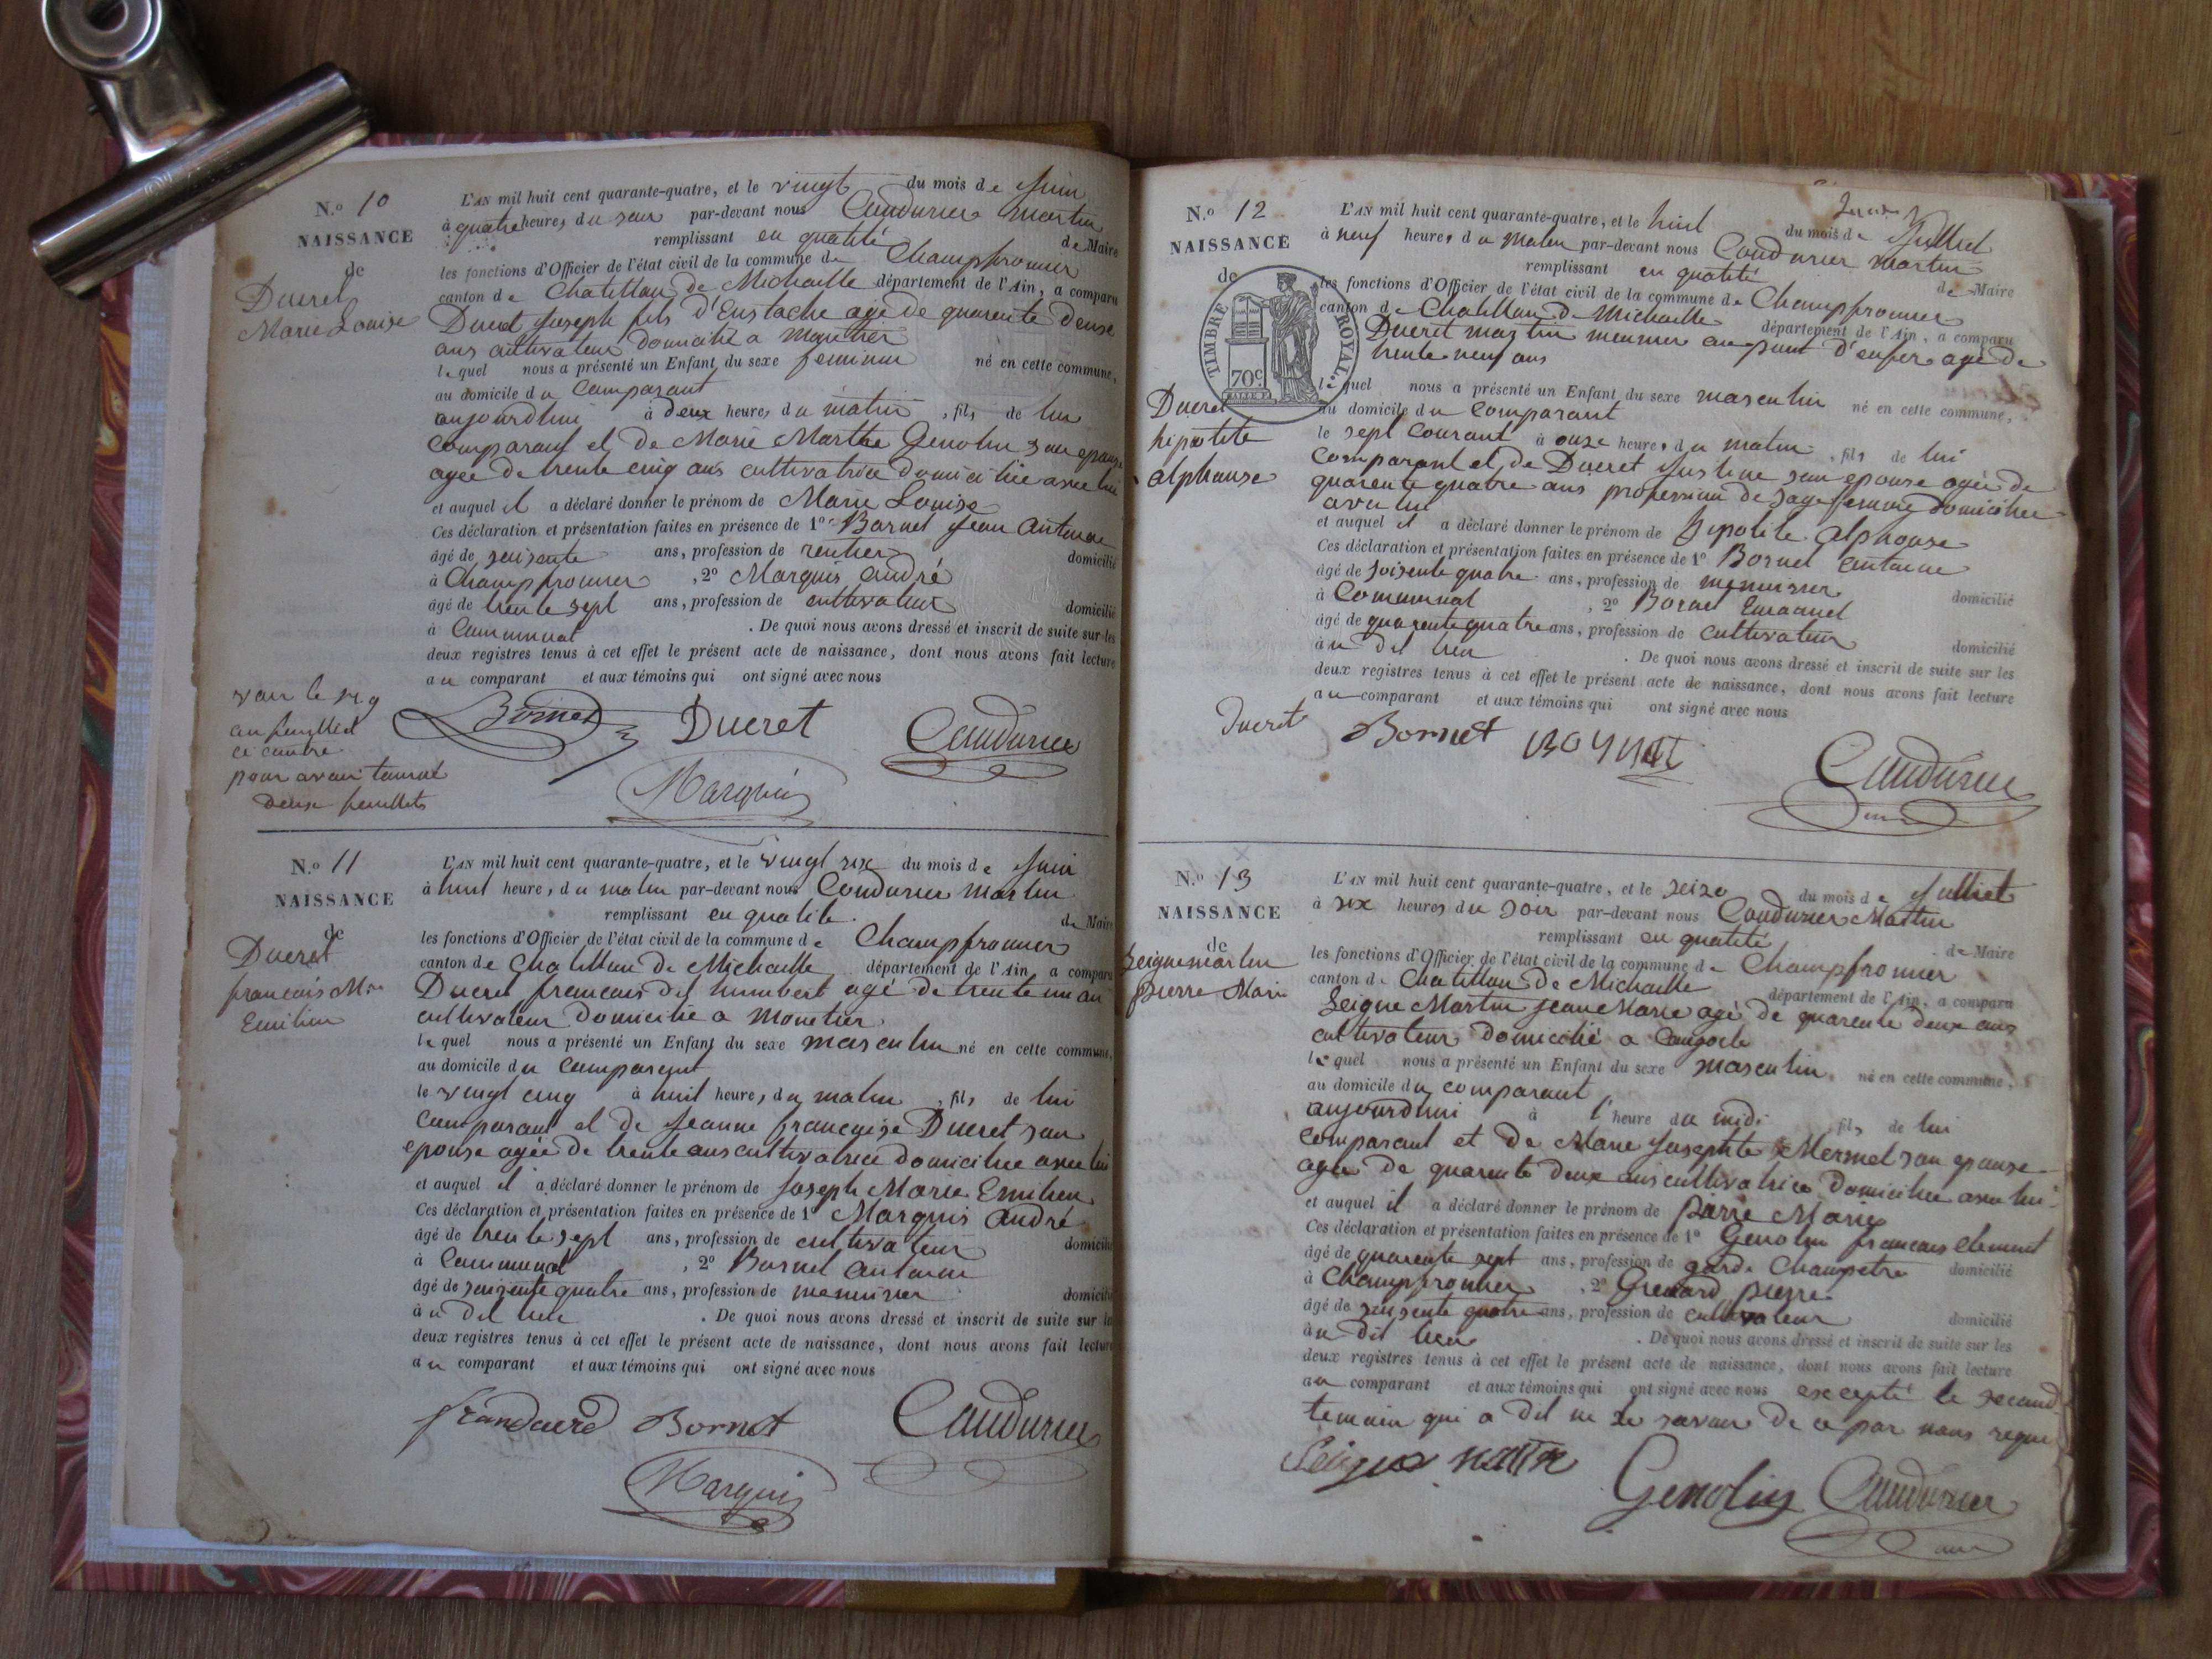 N.º 10
NAISSANCE
de
Ducret
Marie Louise
L'AN mil huit cent quarante-quatre, et le vingt du mois de Juin
à quatre heures du soir par-devant nous Coudurier Martin
remplissant en qualité de Maire
les fonctions d'Officier de l'état civil de la commune de Champfromier
canton de Chatillon de Michaille département de l'Ain, a comparu
Ducret Joseph fils d'Eustache agé de quarente deuse
ans cultivateur domicilié a Monetier
lequel nous a présenté un Enfant du sexe feminin né en cette commune,
au domicile du Comparant
aujourdhui à deux heures du matin, fils de lui
comparant et de Marie Marthe Genolin son epouse
agée de trente cinq ans cultivatrice domiciliée avec lui
et auquel il a déclaré donner le prénom de Marie Louise
Ces déclaration et présentation faites en présence de 1º Bornet Jean Antoine
âgé de soisente ans, profession de rentier domicilié
à Champfromier, 2º Marquis André
âgé de trente sept ans, profession de cultivateur domicilié
à Communal. De quoi nous avons dressé et inscrit de suite sur les
deux registres tenus à cet effet le présent acte de naissance, dont nous avons fait lecture
au comparant et aux témoins qui ont signé avec nous
voir le
au feuillet
ci contre
pour avoir tourné
deuse feuillets
Bornet Ducret Coudurier
Marquis
N.º 11
NAISSANCE
de
Ducret
francois M.ie
Emilien
L'AN mil huit cent quarante-quatre, et le vingt six du mois de Juin
à huit heures du matin par-devant nous Coudurier Martin
remplissant en qualité de Maire
les fonctions d'Officier de l'état civil de la commune de Champfromier
canton de Chatillon de Michaille département de l'Ain, a comparu
Ducret francois dit humbert agé de trente un an
cultivateur domicilié a Monetier
lequel nous a présenté un Enfant du sexe masculin né en cette commune,
au domicile du comparant
le vingt cinq à huit heures du matin, fils de lui
comparant et de Jeanne francoise Ducret son
epouse agée de trente ans cultivatrice domiciliee avec lui
et auquel il a déclaré donner le prénom de Joseph Marie Emilien
Ces déclaration et présentation faites en présence de 1º Marquis André
âgé de trente sept ans, profession de cultivateur domicilié
à Communal, 2º Bornet Antoine
âgé de soisente quatre ans, profession de menuisier domicilié
à u dit lieu. De quoi nous avons dressé et inscrit de suite sur les
deux registres tenus à cet effet le présent acte de naissance, dont nous avons fait lecture
au comparant et aux témoins qui ont signé avec nous
Bornet Coudurier
Marquis
N.º 12
NAISSANCE
de
TIMBRE ROYAL
70c
Ducret
hipolite
alphonse
L'AN mil huit cent quarante-quatre, et le huit du mois de Julliet
à neuf heures du matin par-devant nous Coudurier Martin
remplissant en qualité de Maire
les fonctions d'Officier de l'état civil de la commune de Champfromier
canton de Chatillon de Michaille département de l'Ain, a comparu
Ducret Martin meunier au pont d'enfer agé de
trente neuf ans
lequel nous a présenté un Enfant du sexe masculin né en cette commune,
au domicile du comparant
le sept courant à onze heures du matin, fils de lui
comparant et de Ducret Justine son epouse agée de
quarente quatre ans profession de sage femme domiciliee
avec lui
et auquel il a déclaré donner le prénom de hipolite alphonse
Ces déclaration et présentation faites en présence de 1º Bornet Antoine
âgé de soisente quatre ans, profession de menuisier domicilié
à Communal, 2º Bornet Emanuel
âgé de quarente quatre ans, profession de cultivateur domicilié
à u dit lieu. De quoi nous avons dressé et inscrit de suite sur les
deux registres tenus à cet effet le présent acte de naissance, dont nous avons fait lecture
au comparant et aux témoins qui ont signé avec nous
Ducret Bornet Coudurier
N.º 13
NAISSANCE
de
Seignemartin
pierre Marie
L'AN mil huit cent quarante-quatre, et le seize du mois de Julliet
à six heures du soir par-devant nous Coudurier Martin
remplissant en qualité de Maire
les fonctions d'Officier de l'état civil de la commune de Champfromier
canton de Chatillon de Michaille département de l'Ain, a comparu
Seigne Martin Jean Marie agé de quarente deux ans
cultivateur domicilié a
lequel nous a présenté un Enfant du sexe masculin né en cette commune,
au domicile du comparant
aujourdhui à l'heure du midi fils de lui
comparant et de Marie Josephte Mermet son epouse
agée de quarente deux ans cultivatrice domiciliee avec lui
et auquel il a déclaré donner le prénom de pierre Marie
Ces déclaration et présentation faites en présence de 1º Genolin francois Clement
âgé de quarente sept ans, profession de garde Champetre domicilié
à Champfromier, 2º Grenard pierre
âgé de soisente quatre ans, profession de cultivateur domicilié
à u dit lieu. De quoi nous avons dressé et inscrit de suite sur les
deux registres tenus à cet effet le présent acte de naissance, dont nous avons fait lecture
au comparant et aux témoins qui ont signé avec nous excepté le second
temoin qui a dit ne le savoir de ce par nous requi
Seigne Genolin Coudurier